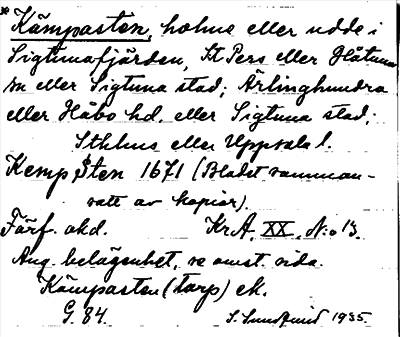 * Kämpasten, holme eller udde i
Sigtunafjärden, St Pers eller Håtuna
sn eller Sigtuna stad; Ärlinghundra
eller Håbo hd. eller Sigtuna stad;
Sthlms eller Uppsala l.
Kemp,Sten 1671 (Bladet samman-
satt av kopior).
Förf. okd. Kr.A. XX. N:o 13.
Ang. belägenhet, se omst. sida.
Kämpasten (torp) ek.
G. 84. S. Sundqvist 1935.